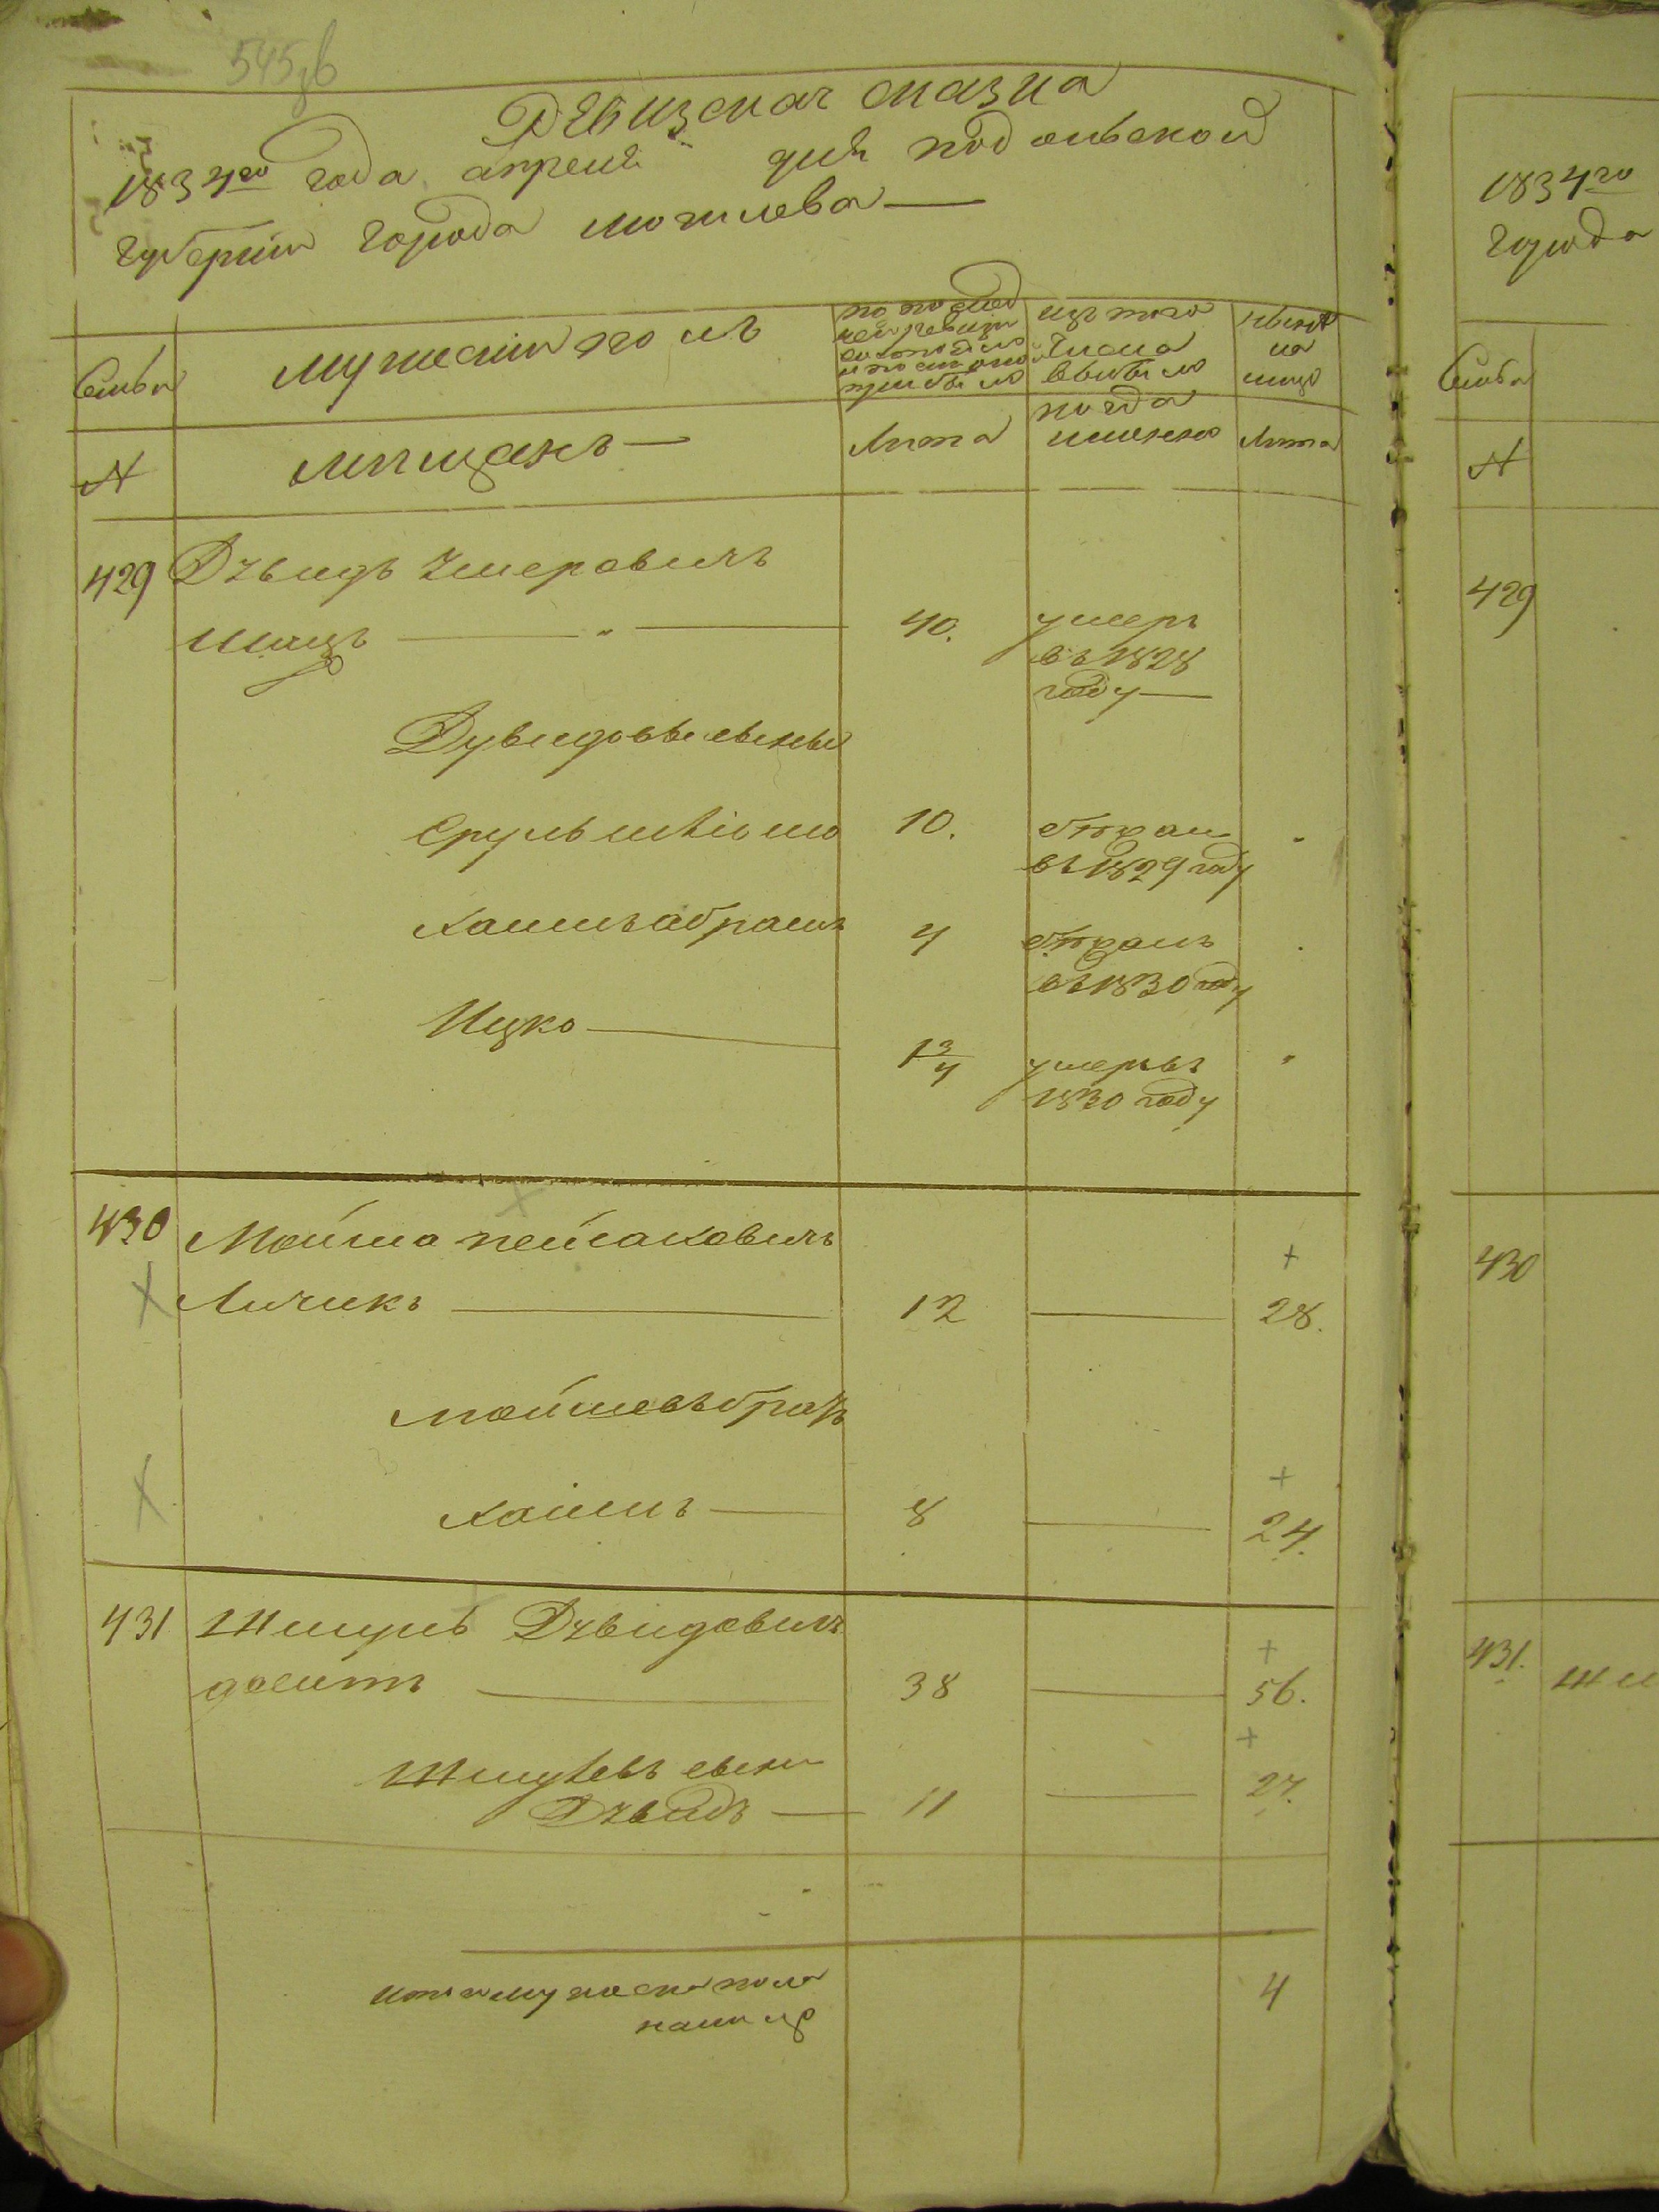 545зв
Ревизская сказка
1834го года апреля дня подольской
губернии города могилева
Семьи
мужеский полъ
по послед
ней ревизiи
состояло
и после оной
прибыло
изъ того
числа
выбыло
ныне
на
лицо
N
мещанъ
Лета
когда
именно
Лета
429 Дувидъ Умеровичъ
Шмидъ — " — 40. умеръ
въ 1828
году
Дувидовы сыновья
Сруль 10.
въ 1829 году
Хаимъ абрамъ 4
въ 1830 году
Ицко 1 3/4 умеръ въ
1830 году
430 Мойша пейсаховичъ
Личикъ 12 28.
мойшевъ братъ
Хаимъ 8 24.
431 Шмуль Дувидовичъ
38 56.
Шмулевъ сынъ
Дувидъ 11 27.
Итого мужеска пола
на лицо 4
1834го
города
Семьи
N
429
430
431. Шм